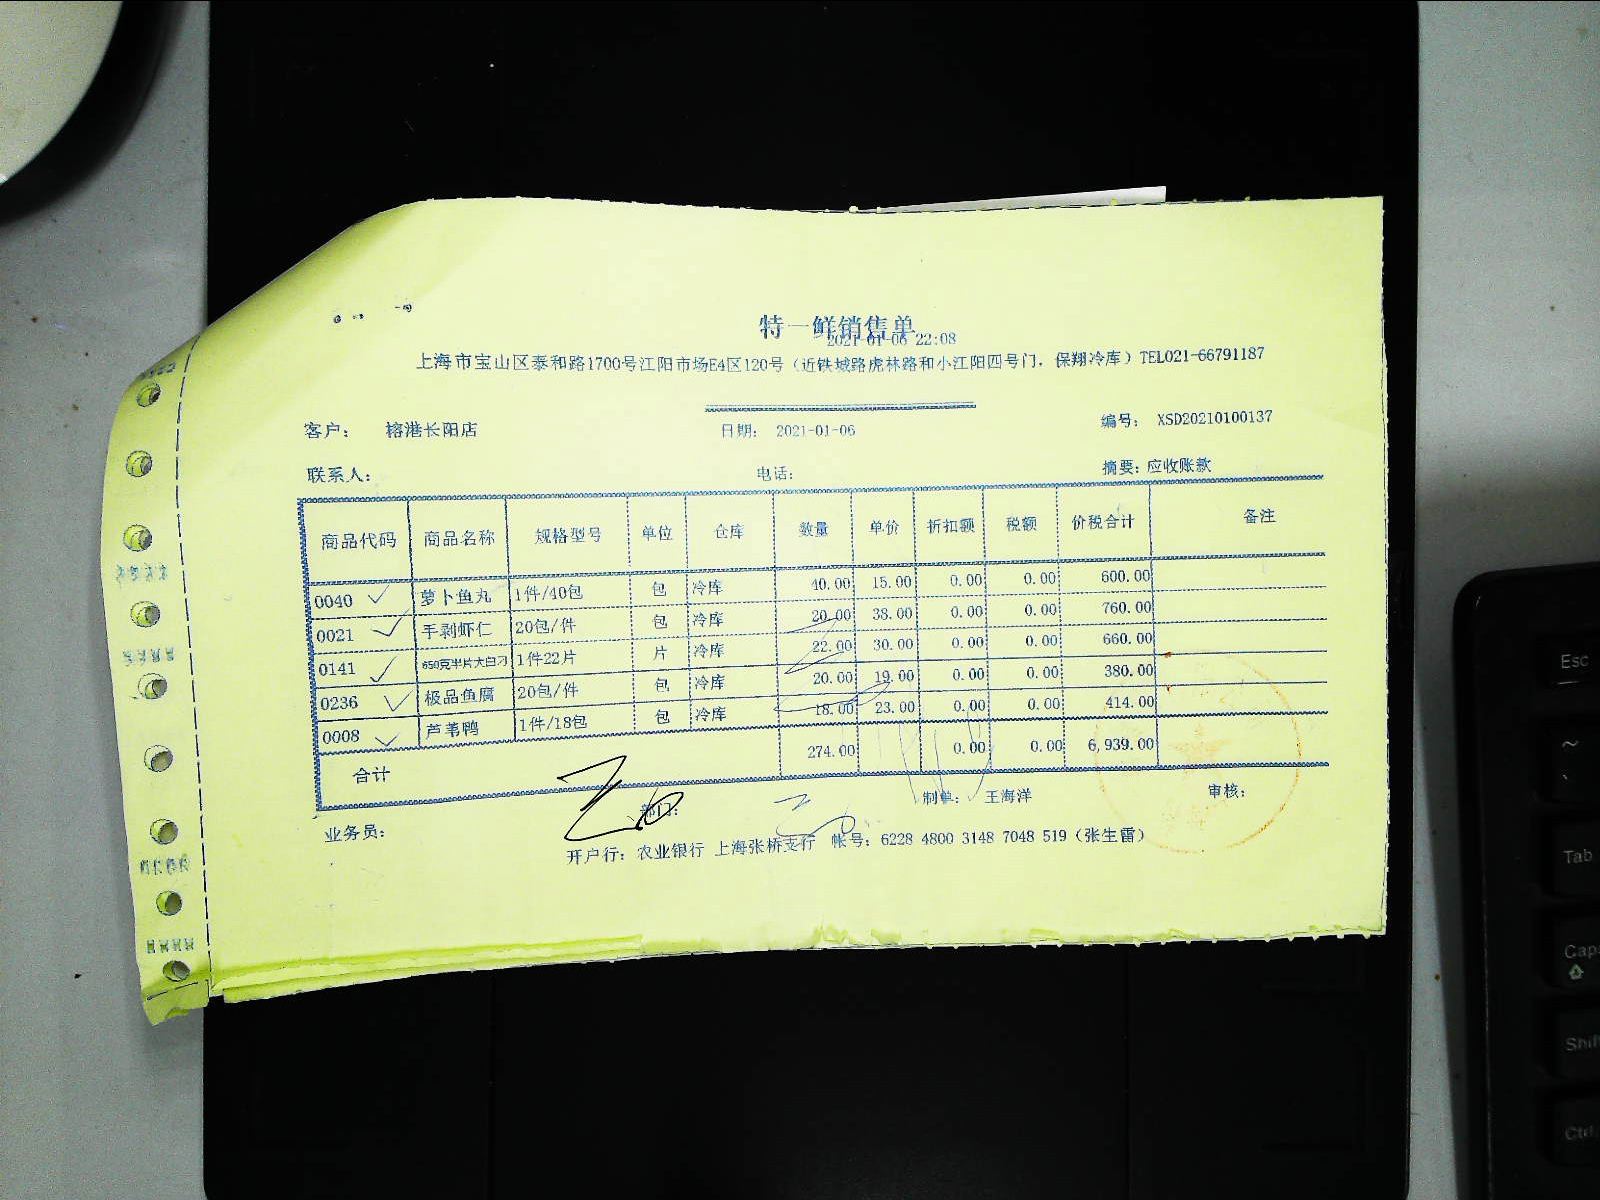 特一鲜销售单
2021-01-06 22:08
上海市宝山区泰和路1700号江阳市场E4区120号（近铁城路虎林路和小江阳四号门，保翔冷库）TEL021-66791187
客户： 榕港长阳店 日期： 2021-01-06 编号： XSD20210100137
联系人： 电话： 摘要：应收账款
商品代码 商品名称 规格型号 单位 仓库 数量 单价 折扣额 税额 价税合计 备注
0040 萝卜鱼丸 1件/40包 包 冷库 40.00 15.00 0.00 0.00 600.00
0021 手剥虾仁 20包/件 包 冷库 20.00 38.00 0.00 0.00 760.00
0141 650克半片大白刁 1件22片 片 冷库 22.00 30.00 0.00 0.00 660.00
0236 极品鱼腐 20包/件 包 冷库 20.00 19.00 0.00 0.00 380.00
0008 芦苇鸭 1件/18包 包 冷库 18.00 23.00 0.00 0.00 414.00
合计 274.00 0.00 0.00 6,939.00
业务员： 部门： 制单： 王海洋 审核：
开户行：农业银行 上海张桥支行 帐号：6228 4800 3148 7048 519（张生雷）
Esc
~
Tab
Caps
Shift
Ctrl